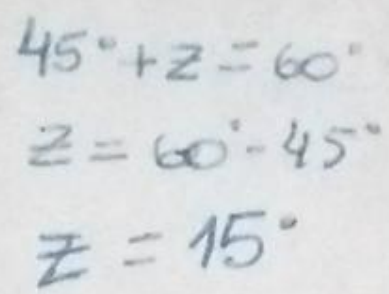 45° + z = 60°
z = 60° - 45°
z = 15°